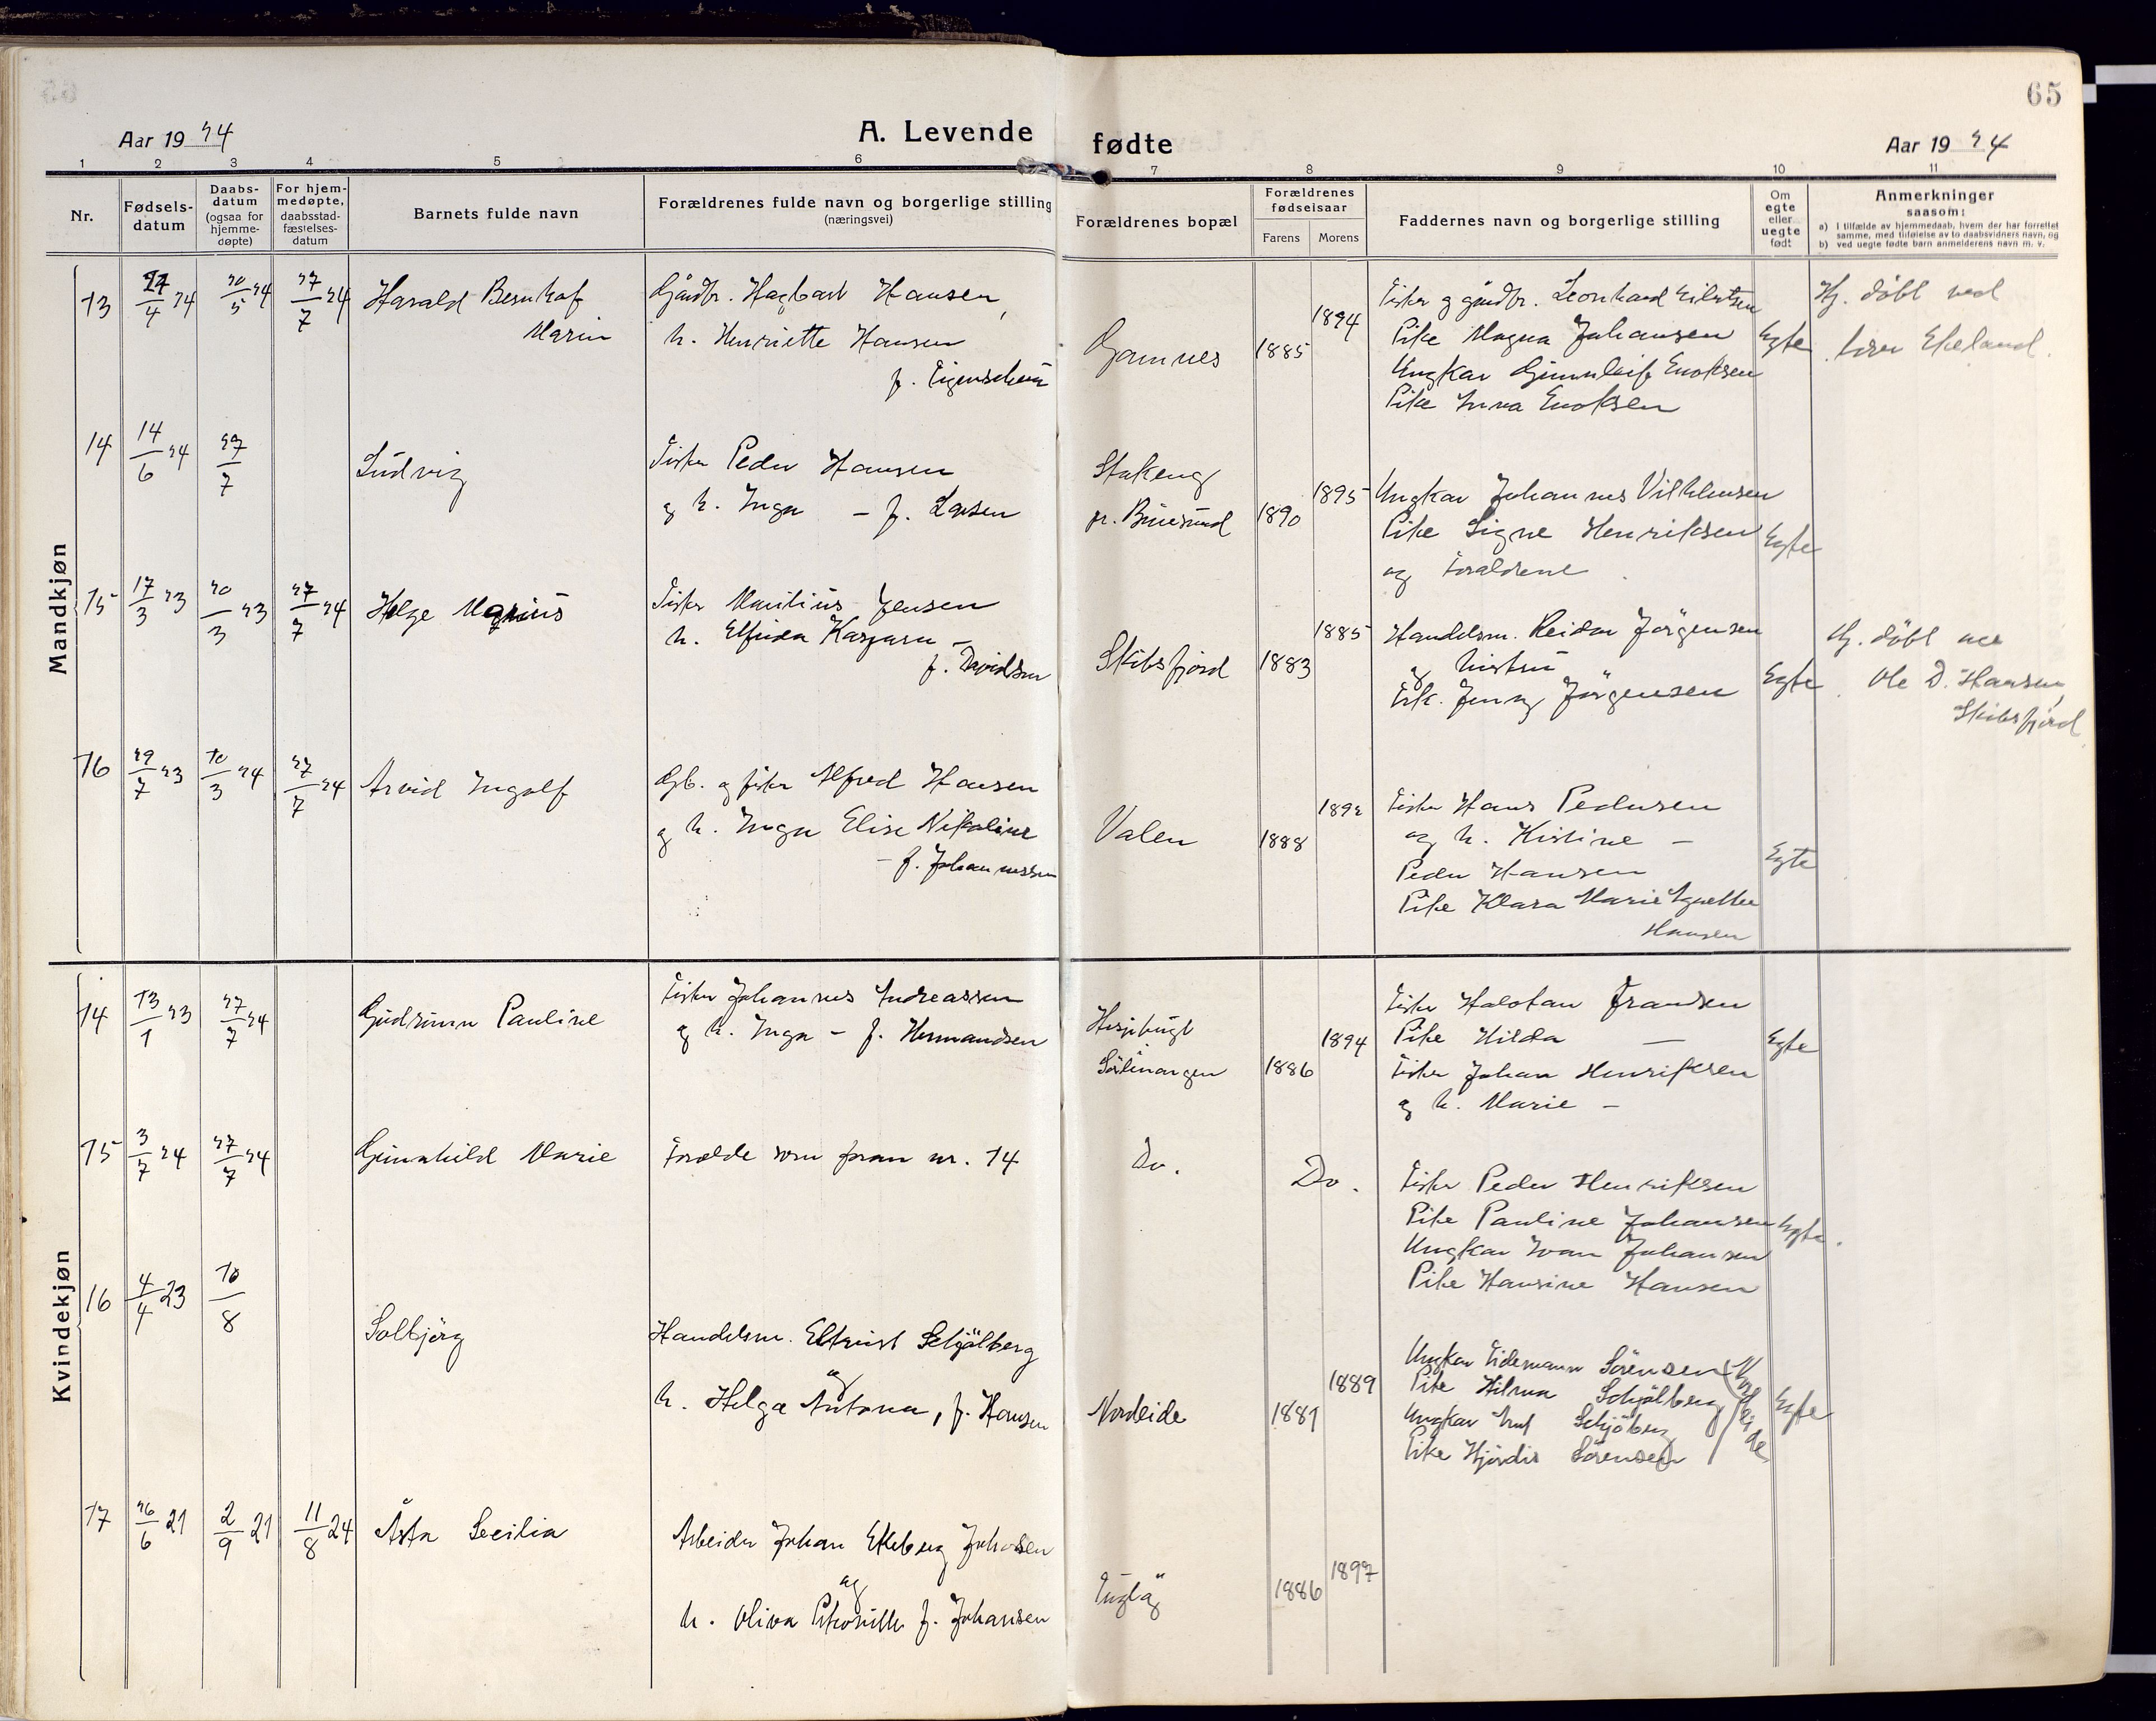 65
Aar 1924
A. Levende fødte
Aar 1924
1 2 3 4 5 6 7 8 9 10 11
Nr.
Fødsels-
datum
Daabs-
datum
(ogsaa for
hjemme-
døpte)
For hjem-
medøpte,
daabsstad-
fæstelses-
datum
Barnets fulde navn
Forældrenes fulde navn og borgerlige stilling
(næringsvei)
Forældrenes bopæl
Forældrenes
fødselsaar
Farens Morens
Faddernes navn og borgerlige stilling
Om
egte
eller
uegte
født
Anmerkninger
saasom:
a) I tilfælde av hjemmedaab, hvem der har forrettet
samme, med tilføielse av to daabsvidners navn, og
b) ved uegte fødte barn anmelderens navn m. v.
Mandkjøn
13 24/4 24 20/5 24 27/7 24
Harald Bernhof
Marin
Gårdbr. Hagbart Hansen,
h. Henriette Hansen
Gamnes
1885 1894
Fisker g gårdbr. Leonhard Eilertsen
Pike Magna Johansen
Ungkar Gunnleif Enoksen
Pike Enoksen
Egte
Hj. döbt ved
lærer Ekeland.
14 14/6 24 27/7
Ludvig
Fisker Peder Hansen
og h. Inga – f. Larsen
Stakeng
1890 1895
Ungkar Johannes Vilhelmsen
Pike Signe Henriksen
og Forældrene
Egte
15 17/3 23 20/3 23 27/7 24
Helge Marius
Fisker Jensen
h. –
f. Davidsen
Skibsfjord
1883 1885
Handelsm. Reidar Jörgensen
og hustru
Frk. Jenny Jörgensen
Egte
Hj. döbt av
Ole D. Hansen,
Skibsfjord
16 29/7 23 10/3 24 27/7 24
Arvid Ingolf
Gb. og fisker Alfred Hansen
og h. Inga Elise Nikoline
– f. Johannessen
Valen
1888 1892
Fisker Hans Pedersen
og h. Kistine –
Peder Hansen
Pike Klara Marie Agnethe
Hansen
Egte
Kvindekjøn
14 13/1 23 27/7 24
Gudrunn Pauline
Fisker Johannes Andreassen
g h. Inga – f. Hermandsen
Sörlenangen
1886 1894
Fisker Halvtan Frandsen
Pike Hilda —
Fisker Johan Henriksen
g h. Marie –
Egte
15 3/7 24 27/7 24
Gunnhild Marie
Forælde som foran nr. 14
Do.
Do.
Fisker Peder Henriksen
Pike Pauline Johansen
Ungkar Ivan Johansen
Pike Hansine Hansen
Egte.
16 4/4 23 10/8
Solbjörg
Handelsm. Schjölberg
og
h. Helga Antona, f. Hansen
Nordeide
1881 1889
Ungkar Tidemann Sörensen
Pike Hilma Schjölberg
Ungkar Schjölberg
Pike Hjördis Sörensen
Nordeide
Egte
17 26/6 21 2/9 21 11/8 24
Åsta Secilia
Arbeider Johan Ekeberg Johansen
og
h. Oliva f. Johansen
1886 1897